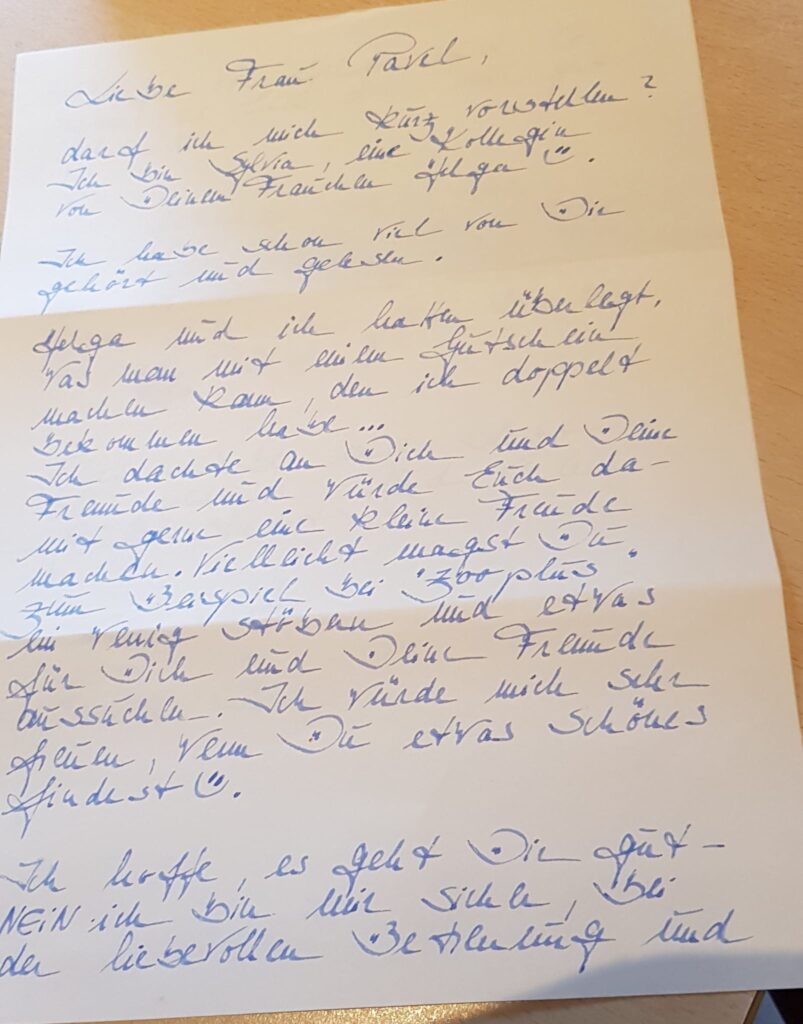 Liebe Frau Pavel,
darf ich mich kurz vorstellen?
Ich bin Sylvia, eine Kollegin
von Deinem Frauchen Helga ☺.
Ich habe schon viel von Dir
gehört und gelesen.
Helga und ich hatten überlegt,
was man mit einem Gutschein
machen kann, den ich doppelt
bekommen habe...
Ich dachte an Dich und Deine
Freunde und würde Euch da-
mit gerne eine kleine Freude
machen. Vielleicht magst Du
zum Beispiel bei "Zooplus"
ein wenig stöbern und etwas
für Dich und Deine Freunde
aussuchen. Ich würde mich sehr
freuen, wenn Du etwas schönes
findest ☺.
Ich hoffe, es geht Dir gut -
NEIN ich bin mir sicher, bei
der liebevollen Betreuung und